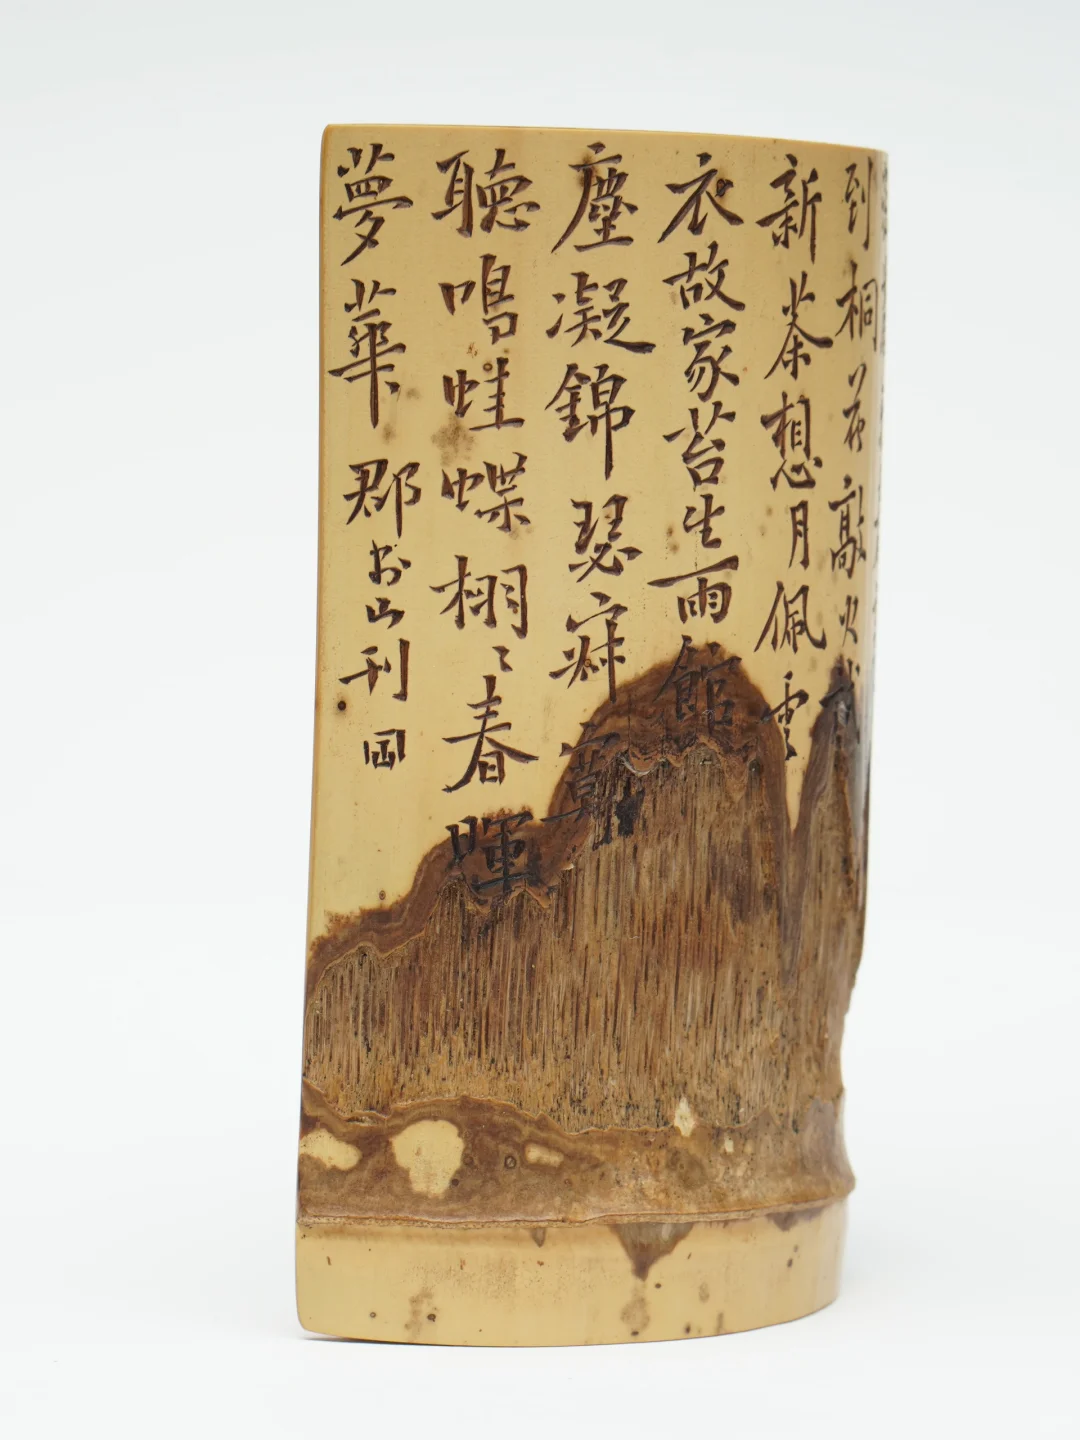 到桐花敲火試
新茶想月佩雲
衣故家苔生雨館
塵凝錦瑟寂寞
聽鳴蛙蝶栩〻春暉
夢華 郡山刊